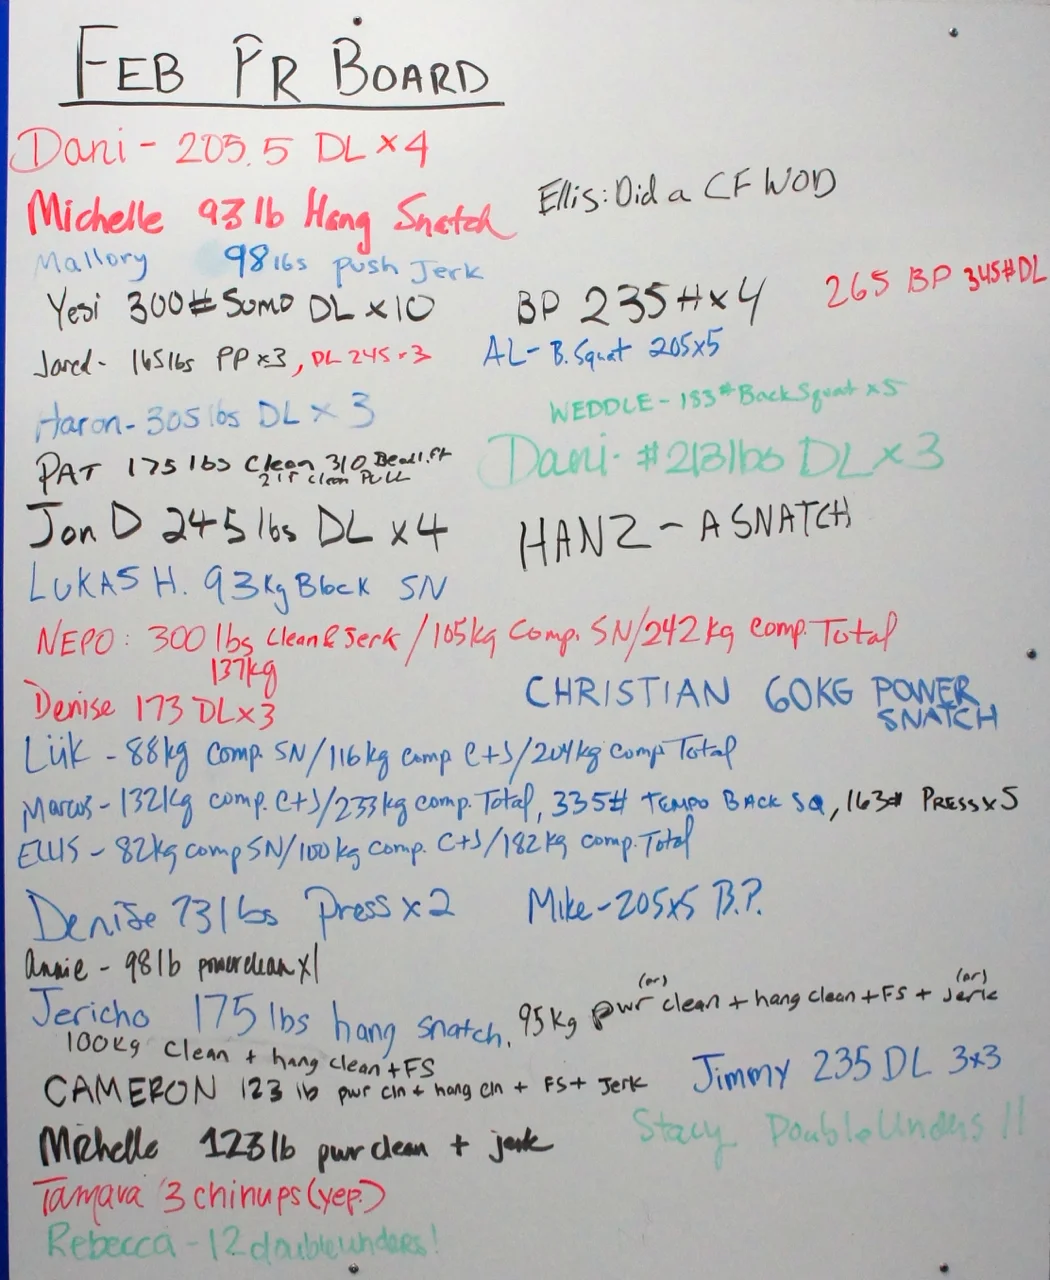 FEB PR BOARD
Dani - 205.5 DL x 4
Ellis: Did a CF WOD
Michelle 93 lb Hang Snatch
Mallory 98 lbs push Jerk
Yesi 300# Sumo DL x 10 BP 235# x 4 265 BP 345# DL
Jared - 165 lbs PP x 3, DL 245 x 3 AL - B. Squat 205x5
Haron - 305 lbs DL x 3 WEDDLE - 183# Back Squat x 5
PAT 175 lbs Clean 310 Deadlift Dani - #213 lbs DL x 3
215 clean PULL
Jon D 245 lbs DL x 4 HANZ - A SNATCH
LUKAS H. 93 Kg Block SN
NEPO: 300 lbs Clean & Jerk / 105kg Comp. SN / 242 kg comp. Total
137kg
Denise 173 DL x 3 CHRISTIAN 60KG POWER
SNATCH
LüK - 88kg comp. SN / 116 kg comp C+J / 204 kg comp Total
Marcos - 132kg comp. C+J / 233 kg comp. Total, 335# TEMPO BACK SQ, 163# PRESS x 5
ELLIS - 82kg comp SN / 100 kg comp. C+J / 182 kg comp. Total
Denise 73 lbs Press x 2 Mike - 205x5 B.P.
Annie - 98 lb power clean x 1
(or) (or)
Jericho 175 lbs hang snatch, 95 kg pwr clean + hang clean + FS + Jerk
100kg Clean + hang clean + FS
CAMERON 123 lb pwr cln + hang cln + FS + Jerk Jimmy 235 DL 3x3
Michelle 123 lb pwr clean + jerk Stacy Double Unders !!
Tamara 3 chinups (yep.)
Rebecca - 12 double unders!